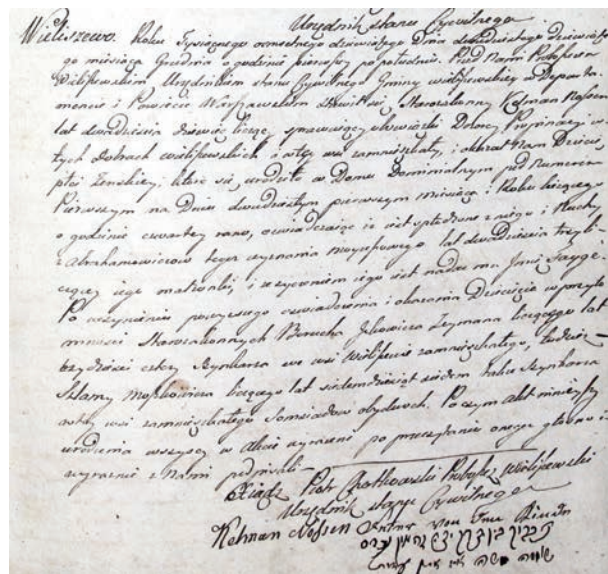 Urzędnik stanu Cywilnego
Wieliszewo. Roku Tysiącznego osmsetnego dziewiątego Dnia dwudziestego dziewiąte-
go miesiąca Grudnia o godzinie pierwszej po południu. Przed Nami Proboszczem
Wieliszewskim Urzędnikiem stanu Cywilnego Gminy wieliszewskiey w Departa-
mencie i Powiecie Warszawskim stawił się Starozakonny Kelman
lat dwadzieścia dziewięć liczący sprawujący obowiązki Propinacyi w
tych dobrach wieliszewskich i w tey wsi zamieszkały, i okazał Nam Dziecię
płci żenskiey, które się urodziło w Domu Dominialnym pod Numerem
Pierwszym na Dniu dwudziestym pierwszym miesiąca i Roku bieżącego
o godzinie czwartey rano, oswiadczaiąc iż iest spłodzone z niego i Ruchy
z Abrahamowiczow tegoż wyznania moyżeszowego lat dwadzieścia trzy li-
czącey iego małżonki, i że życzeniem iego iest nadać mu Jmie
Po uczynieniu powyższego oswiadczenia i okazania Dziecięcia w przyto-
mności Starozakonnych Berucha Zeymana liczącego lat
trzydzieści cztery Szynkarza we wsi Wieliszewie zamieszkałego, tudzież
Szlamy Moszkowicza liczącego lat siedemdziesiąt siedem także Szynkarza
w tey wsi zamieszkałego Sąsiadow obydwoch. Poczym Akt ninieyszy
urodzenia wszyscy w Akcie wyrażeni po przeczytaniu onegoż głosno i
wyraznie z Nami podpisali.
Xiądz Piotr Proboszcz Wieliszewski
Urzędnik stanu Cywilnego
Kelman Nossen Vater von